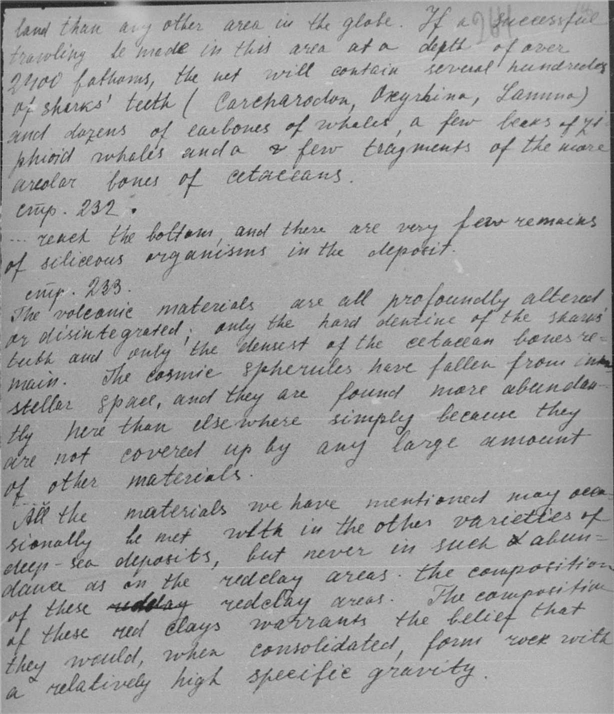 land than any other area in the globe. If a successful
trawling be made in this area at a depth of over
2400 fathoms, the net will contain several hundreds
of sharks' teeth ( Carcharodon, Oxyrhina, Lamna)
and dozens of earbones of whales, a few beaks of zi-
phioid whales and a few fragments of the more
areolar bones of cetaceans.
стр. 232.
... reach the bottom, and there are very few remains
of siliceous organisms in the deposit.
стр. 233.
The volcanic materials are all profoundly altered
or disintegrated; only the hard dentine of the sharks'
teeth and only the densest of the cetacean bones re-
main. The cosmic spherules have fallen from inter
stellar space, and they are found more abundan-
tly here than elsewhere simply because they
are not covered up by any large amount
of other materials.
All the materials we have mentioned may occa
sionally be met with in the other varieties of
deep-sea deposits, but never in such abun-
dance as in the redclay areas. the composition
of these redclay areas. The composition
of these red clays warrants the belief that
they would, when consolidated, form rock with
a relatively high specific gravity.